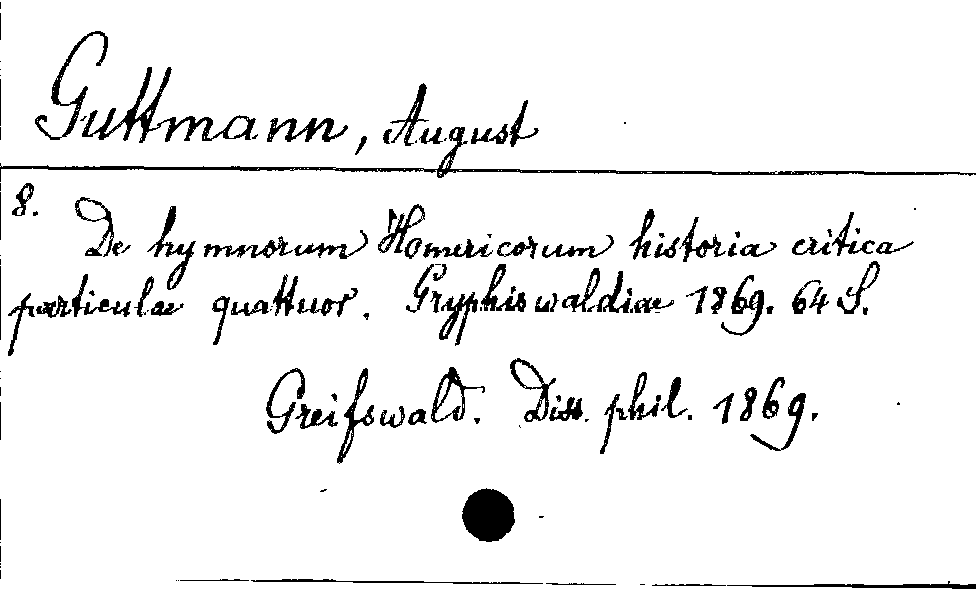 Guttmann, August
8. De hymnorum Homericorum historia critica
particulae quattuor. Gryphiswaldiae 1869. 64 S.
Greifswald. Diss. phil. 1869.